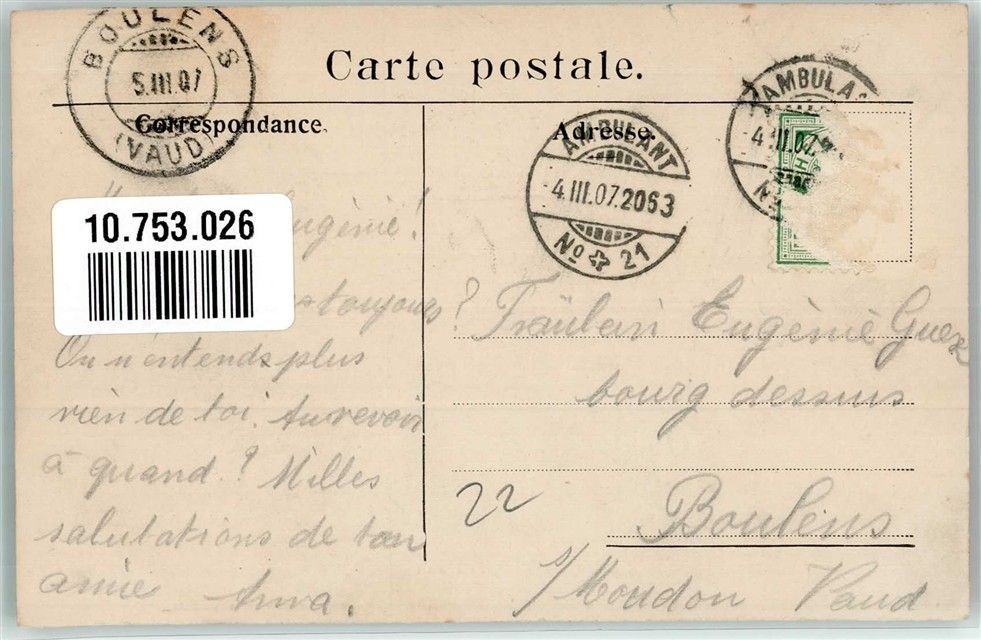 Carte postale.
BOULENS
5.III.07
(VAUD)
Correspondance.
Adresse.
AMBULANT
4.III.07.2063
No 21
AMBULA
4.III.07.
No
10.753.026
Eugénie!
toujours?
On n'entends plus
rien de toi. Au revoir
à quand? Milles
salutations de ton
amie Anna.
Fräulein Eugènie
bourg dessus
22
Boulens
s/Moudon Vaud